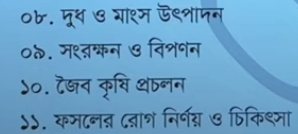 ০৮. দুধ ও মাংস উৎপাদন
০৯. সংরক্ষন ও বিপণন
১০. জৈব কৃষি প্রচলন
১১. ফসলের রোগ নির্ণয় ও চিকিৎসা